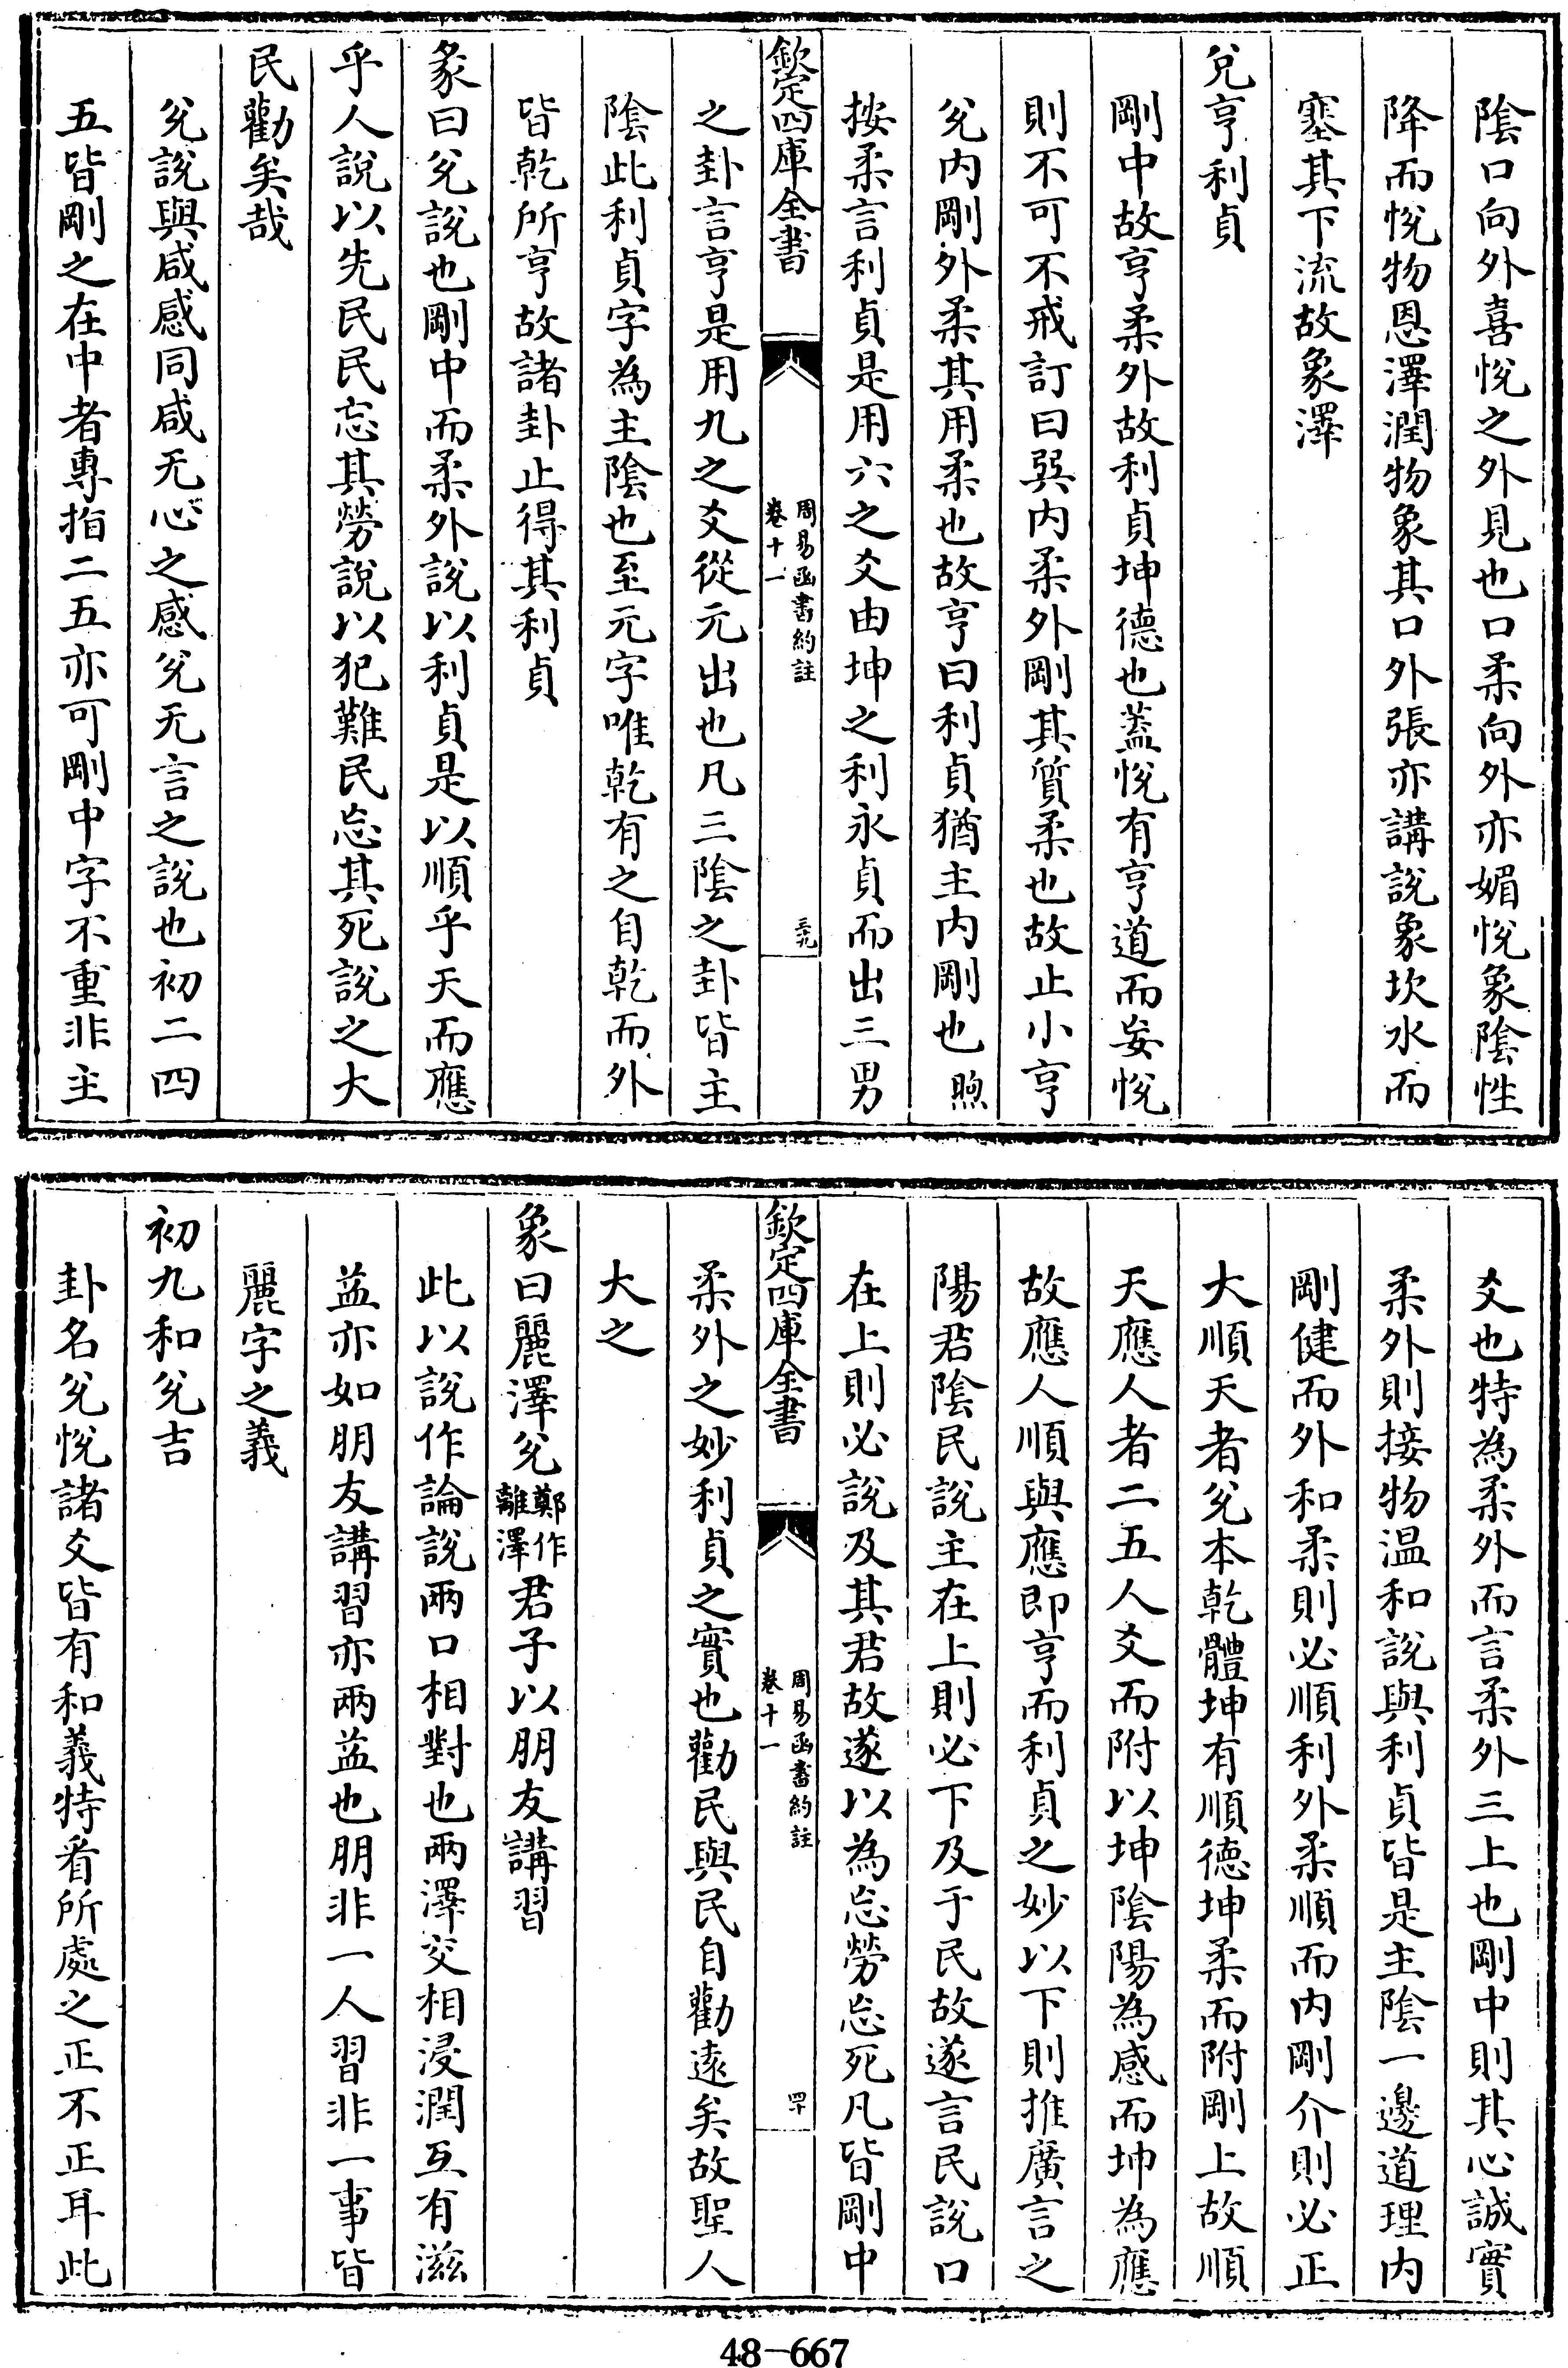 陰口向外喜悅之外見也口柔向外亦媚悅象陰性
降而悅物恩澤潤物象其口外張亦講說象坎水而
塞其下流故象澤
兌亨利貞
剛中故亨柔外故利貞坤德也蓋悅有亨道而妄悅
則不可不戒訂曰巽内柔外剛其質柔也故止小亨
兌内剛外柔其用柔也故亨曰利貞猶主内剛也煦
按柔言利貞是用六之爻由坤之利永貞而出三男
欽定四庫全書
周易函書約註
卷十一
三九
之卦言亨是用九之爻從元出也凡三陰之卦皆主
陰此利貞字為主陰也至元字唯乾有之自乾而外
皆乾所亨故諸卦止得其利貞
彖曰兌說也剛中而柔外說以利貞是以順乎天而應
乎人說以先民民忘其勞說以犯難民忘其死說之大
民勸矣哉
兌說與咸感同咸无心之感兌无言之說也初二四
五皆剛之在中者專指二五亦可剛中字不重非主
爻也特為柔外而言柔外三上也剛中則其心誠實
柔外則接物温和說與利貞皆是主陰一邊道理内
剛健而外和柔則必順利外柔順而内剛介則必正
大順天者兌本乾體坤有順德坤柔而附剛上故順
天應人者二五人爻而附以坤陰陽為感而坤為應
故應人順與應即亨而利貞之妙以下則推廣言之
陽君陰民說主在上則必下及于民故遂言民說口
在上則必說及其君故遂以為忘勞忘死凡皆剛中
欽定四庫全書
周易函書約註
卷十一
四十
柔外之妙利貞之實也勸民與民自勸遠矣故聖人
大之
象曰麗澤兌鄭作離澤君子以朋友講習
此以說作論說兩口相對也兩澤交相浸潤互有滋
益亦如朋友講習亦兩益也朋非一人習非一事皆
麗字之義
初九和兌吉
卦名兌悅諸爻皆有和義特看所處之正不正耳此
48-667